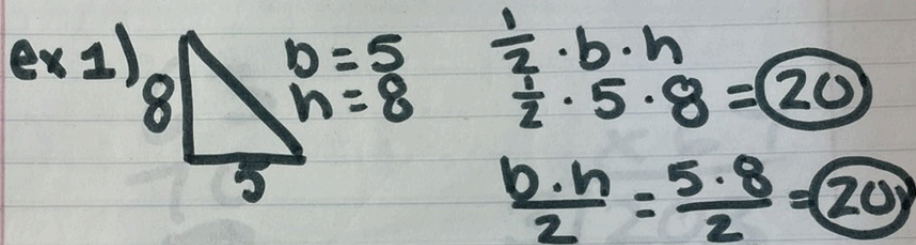 ex 1)
8
5
b = 5
h = 8
1/2 · b · h
1/2 · 5 · 8 = 20
b · h / 2 = 5 · 8 / 2 = 20